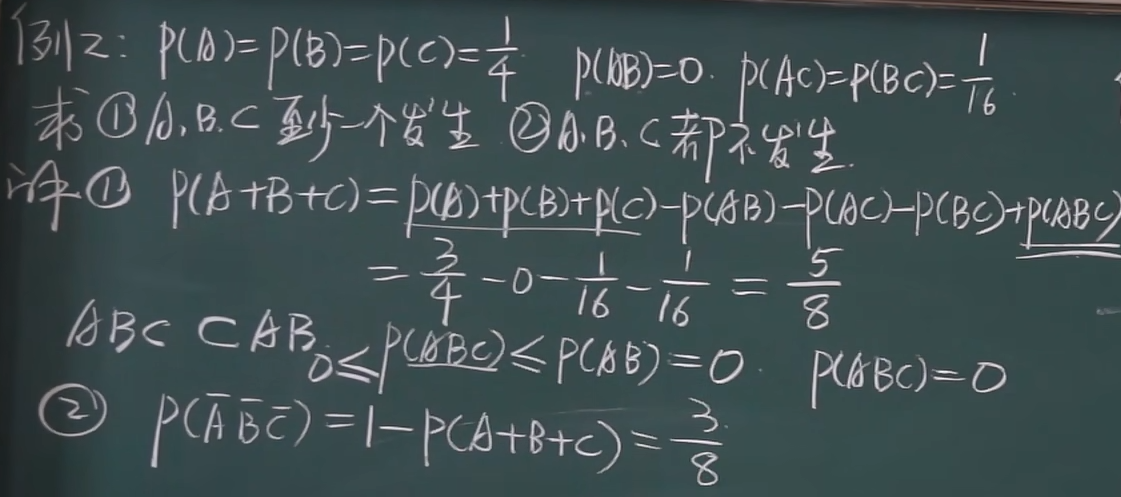 例2: P(A)=P(B)=P(C)=1/4 P(AB)=0. P(AC)=P(BC)=1/16.
求①A.B.C至少一个发生 ②A.B.C都不发生.
解① P(A+B+C)=P(A)+P(B)+P(C)-P(AB)-P(AC)-P(BC)+P(ABC)
=3/4-0-1/16-1/16=5/8
ABC⊂AB, 0≤P(ABC)≤P(AB)=0. P(ABC)=0
② P(A̅ B̅ C̅)=1-P(A+B+C)=3/8